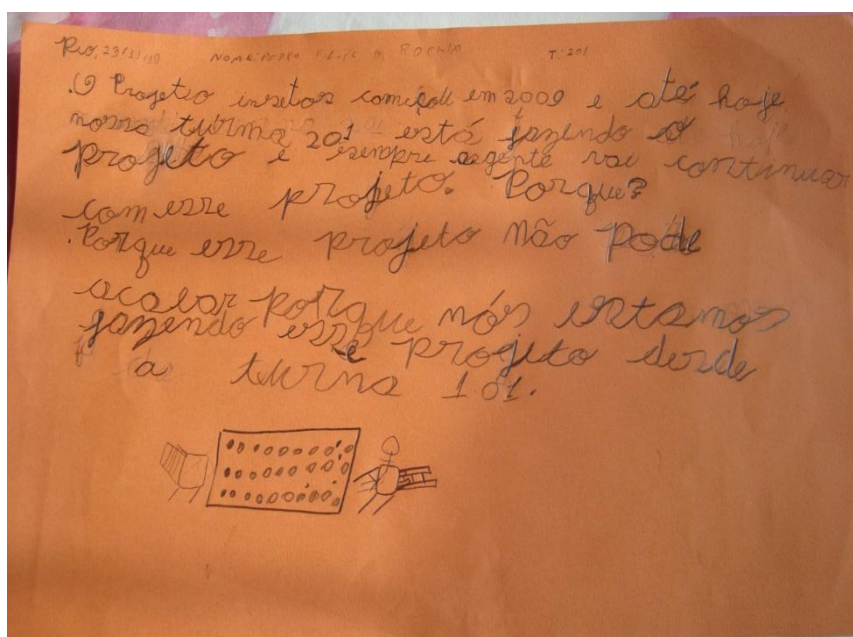 Rio, 23/3/19 NOME: PEDRO FILIPE D. ROCHA T: 201
.O Progetio insetos começou em 2009 e até hoje
nossa turma 201 está fazendo o
progeto e sempre agente vai continuar
com esse projeto. Porque?
.Porque esse projeto não pode
acabar porque nós estamos
fazendo esse progeto desde
a turma 101.